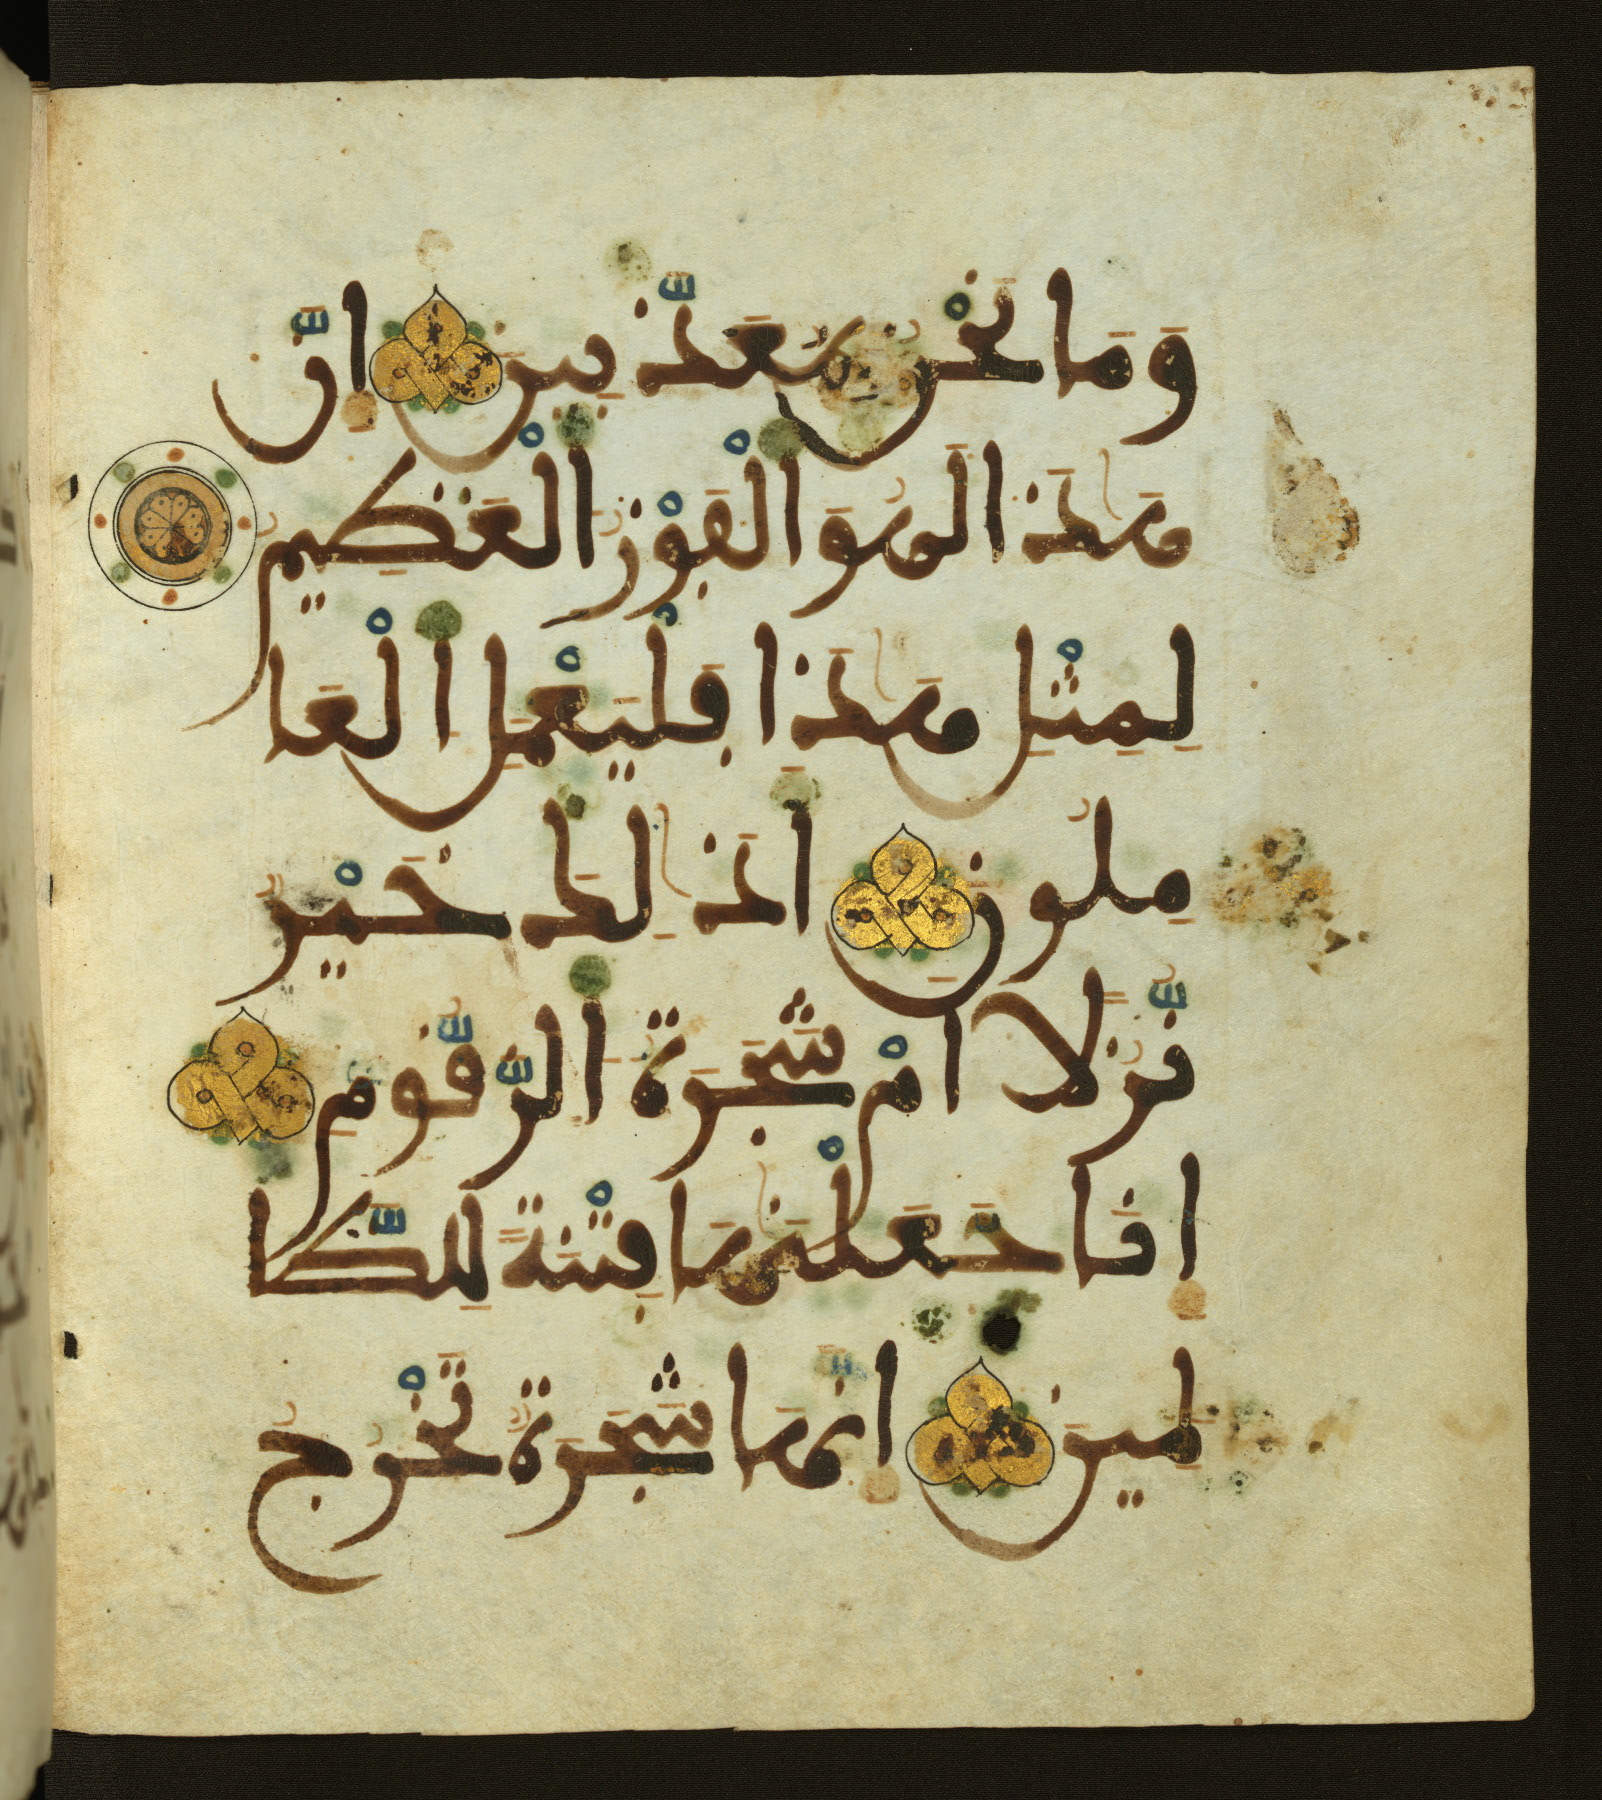 وَمَا نَحْنُ بِمُعَذَّبِينَ إِنَّ
هَٰذَا لَهُوَ الْفَوْزُ الْعَظِيمُ
لِمِثْلِ هَٰذَا فَلْيَعْمَلِ الْعَا
مِلُونَ أَذَٰلِكَ خَيْرٌ
نُّزُلًا أَمْ شَجَرَةُ الزَّقُّومِ
إِنَّا جَعَلْنَٰهَا فِتْنَةً لِلظَّا
لِمِينَ إِنَّهَا شَجَرَةٌ تَخْرُجُ